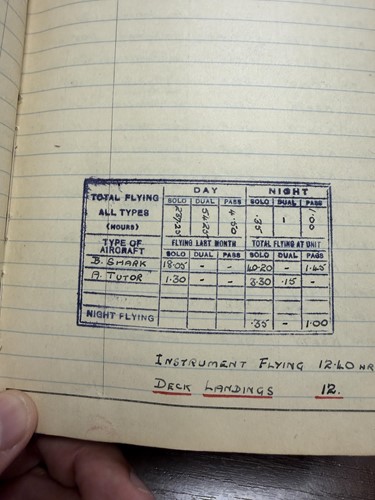 TOTAL FLYING ALL TYPES (HOURS) DAY NIGHT
SOLO DUAL PASS SOLO DUAL PASS
54.25 4.50 .35 - 1.00
TYPE OF AIRCRAFT FLYING LAST MONTH TOTAL FLYING AT UNIT
SOLO DUAL PASS SOLO DUAL PASS
B. SHARK 18.05 - - 40.20 - 1.45
A. TUTOR 1.30 - - 3.30 .15 -
NIGHT FLYING .35 - 1.00
INSTRUMENT FLYING 12.40 HR
DECK LANDINGS 12.